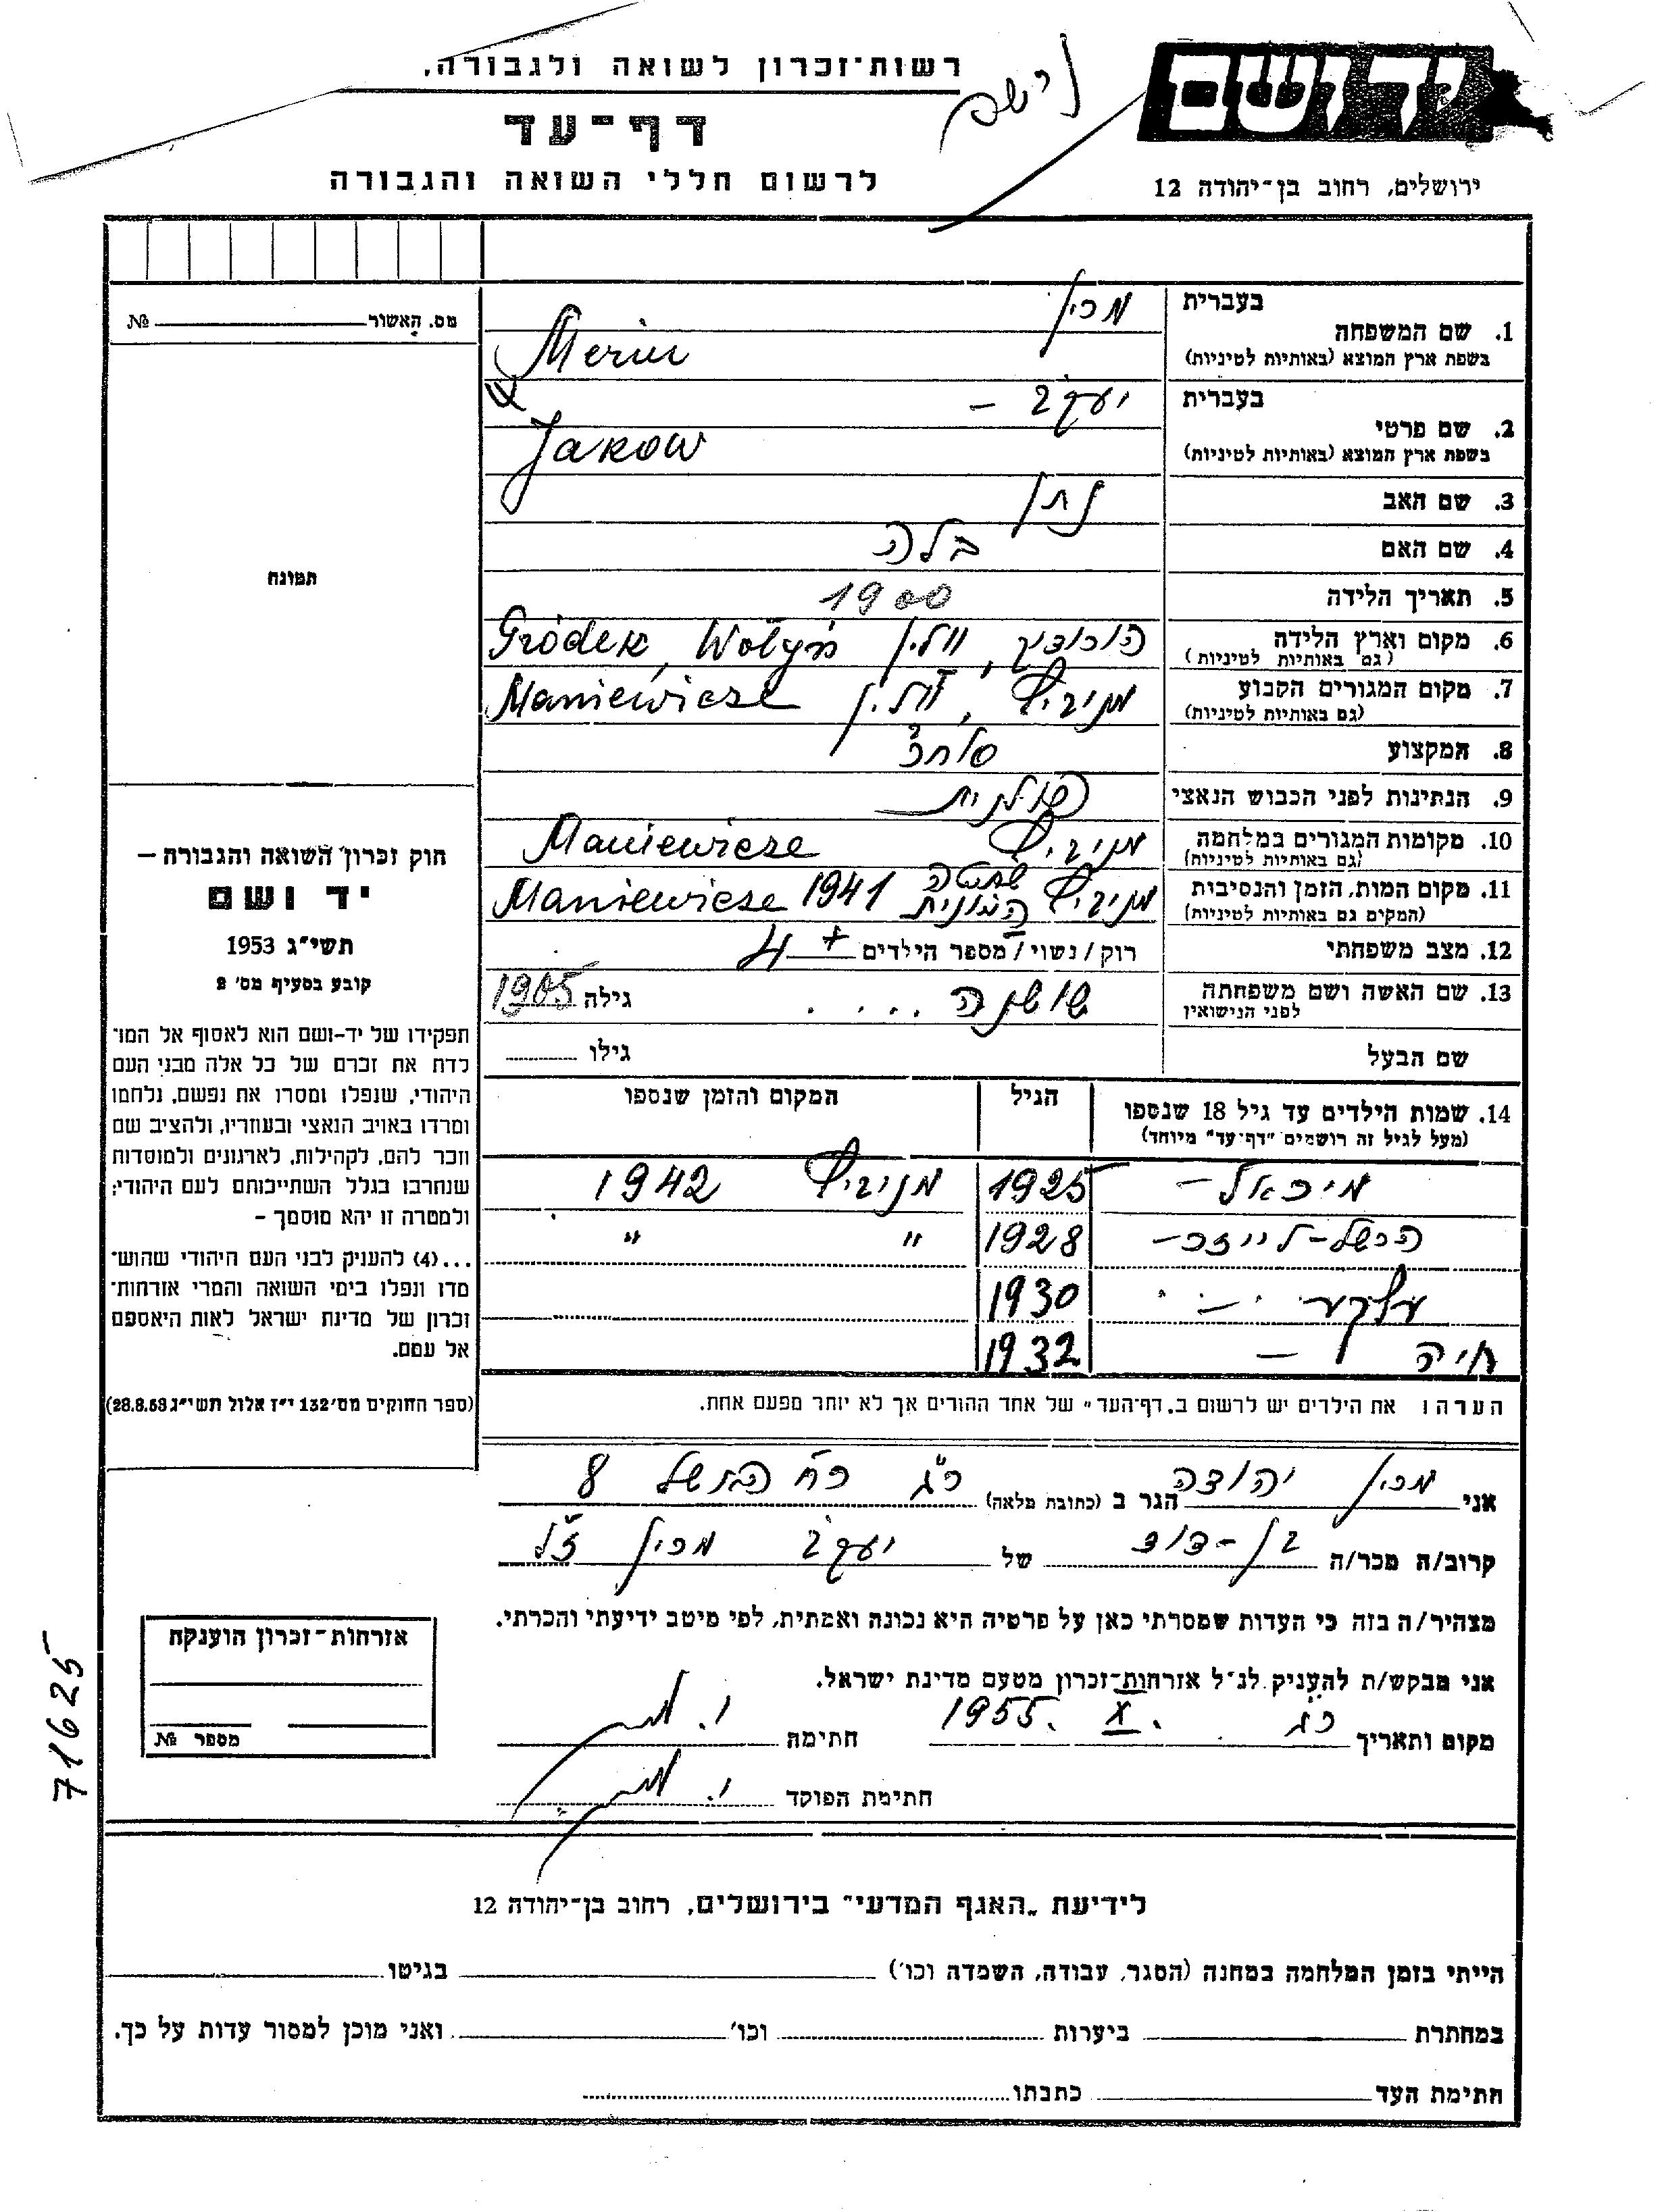 רשות־זכרון לשואה ולגבורה.
יד ושם
דף־עד
לרשום חללי השואה והגבורה
ירושלים, רחוב בן־יהודה 12
מס. האשור № 
1. שם המשפחה
בעברית מרין
בשפת ארץ המוצא (באותיות לטיניות) Merin
2. שם פרטי
בעברית יעקב –
בשפת ארץ המוצא (באותיות לטיניות) Jakow
3. שם האב נתן
4. שם האם בלה
5. תאריך הלידה 1900
6. מקום וארץ הלידה הורודוק, וולין Gródek, Wołyń
(גם באותיות לטיניות)
7. מקום המגורים הקבוע מניביץ, וולין Maniewicze
(גם באותיות לטיניות)
8. המקצוע סוחר
9. הנתינות לפני הכבוש הנאצי פולנית
10. מקומות המגורים במלחמה מניביץ Maniewicze
(גם באותיות לטיניות)
11. מקום המות, הזמן והנסיבות מניביץ שחיטה המונית 1941 Maniewicze
(המקום גם באותיות לטיניות)
12. מצב משפחתי רוק/נשוי/מספר הילדים + 4
13. שם האשה ושם משפחתה שושנה .... גילה 1905
לפני הנישואין
שם הבעל גילו
14. שמות הילדים עד גיל 18 שנספו הגיל המקום והזמן שנספו
(מעל לגיל זה רושמים "דף־עד" מיוחד)
מיכאל – 1925 מניביץ 1942
הרשל-לייזר – 1928 " "
1930
חיה – 1932
הערה: את הילדים יש לרשום ב"דף־העד" של אחד ההורים אך לא יותר מפעם אחת.
תמונה
חוק זכרון השואה והגבורה —
יד ושם
תשי"ג 1953
קובע בסעיף מס' 2
תפקידו של יד-ושם הוא לאסוף אל המו־
לדת את זכרם של כל אלה מבני העם
היהודי, שנפלו ומסרו את נפשם, נלחמו
ומרדו באויב הנאצי ובעוזריו, ולהציב שם
וזכר להם, לקהילות, לארגונים ולמוסדות
שנחרבו בגלל השתייכותם לעם היהודי;
ולמטרה זו יהא מוסמך –
...(4) להעניק לבני העם היהודי שהוש־
מדו ונפלו בימי השואה והמרי אזרחות־
זכרון של מדינת ישראל לאות היאספם
אל עמם.
(ספר החוקים מס' 132 י"ז אלול תשי"ג 28.8.53)
אני מרין יהודה הגר ב (כתובת מלאה) ר"ג רח' הרשל 8
קרוב/ה מכר/ה בן-דוד של יעקב מרין ז"ל
מצהיר/ה בזה כי העדות שמסרתי כאן על פרטיה היא נכונה ואמתית, לפי מיטב ידיעתי והכרתי.
אני מבקש/ת להעניק לנ"ל אזרחות־זכרון מטעם מדינת ישראל.
מקום ותאריך ר"ג . X . 1955 חתימה
חתימת הפוקד
אזרחות־זכרון הוענקה
מספר №
71625
לידיעת "האגף המדעי" בירושלים, רחוב בן־יהודה 12
הייתי בזמן המלחמה במחנה (הסגר, עבודה, השמדה וכו') בגיטו
במחתרת ביערות וכו' ואני מוכן למסור עדות על כך.
חתימת העד כתבתו